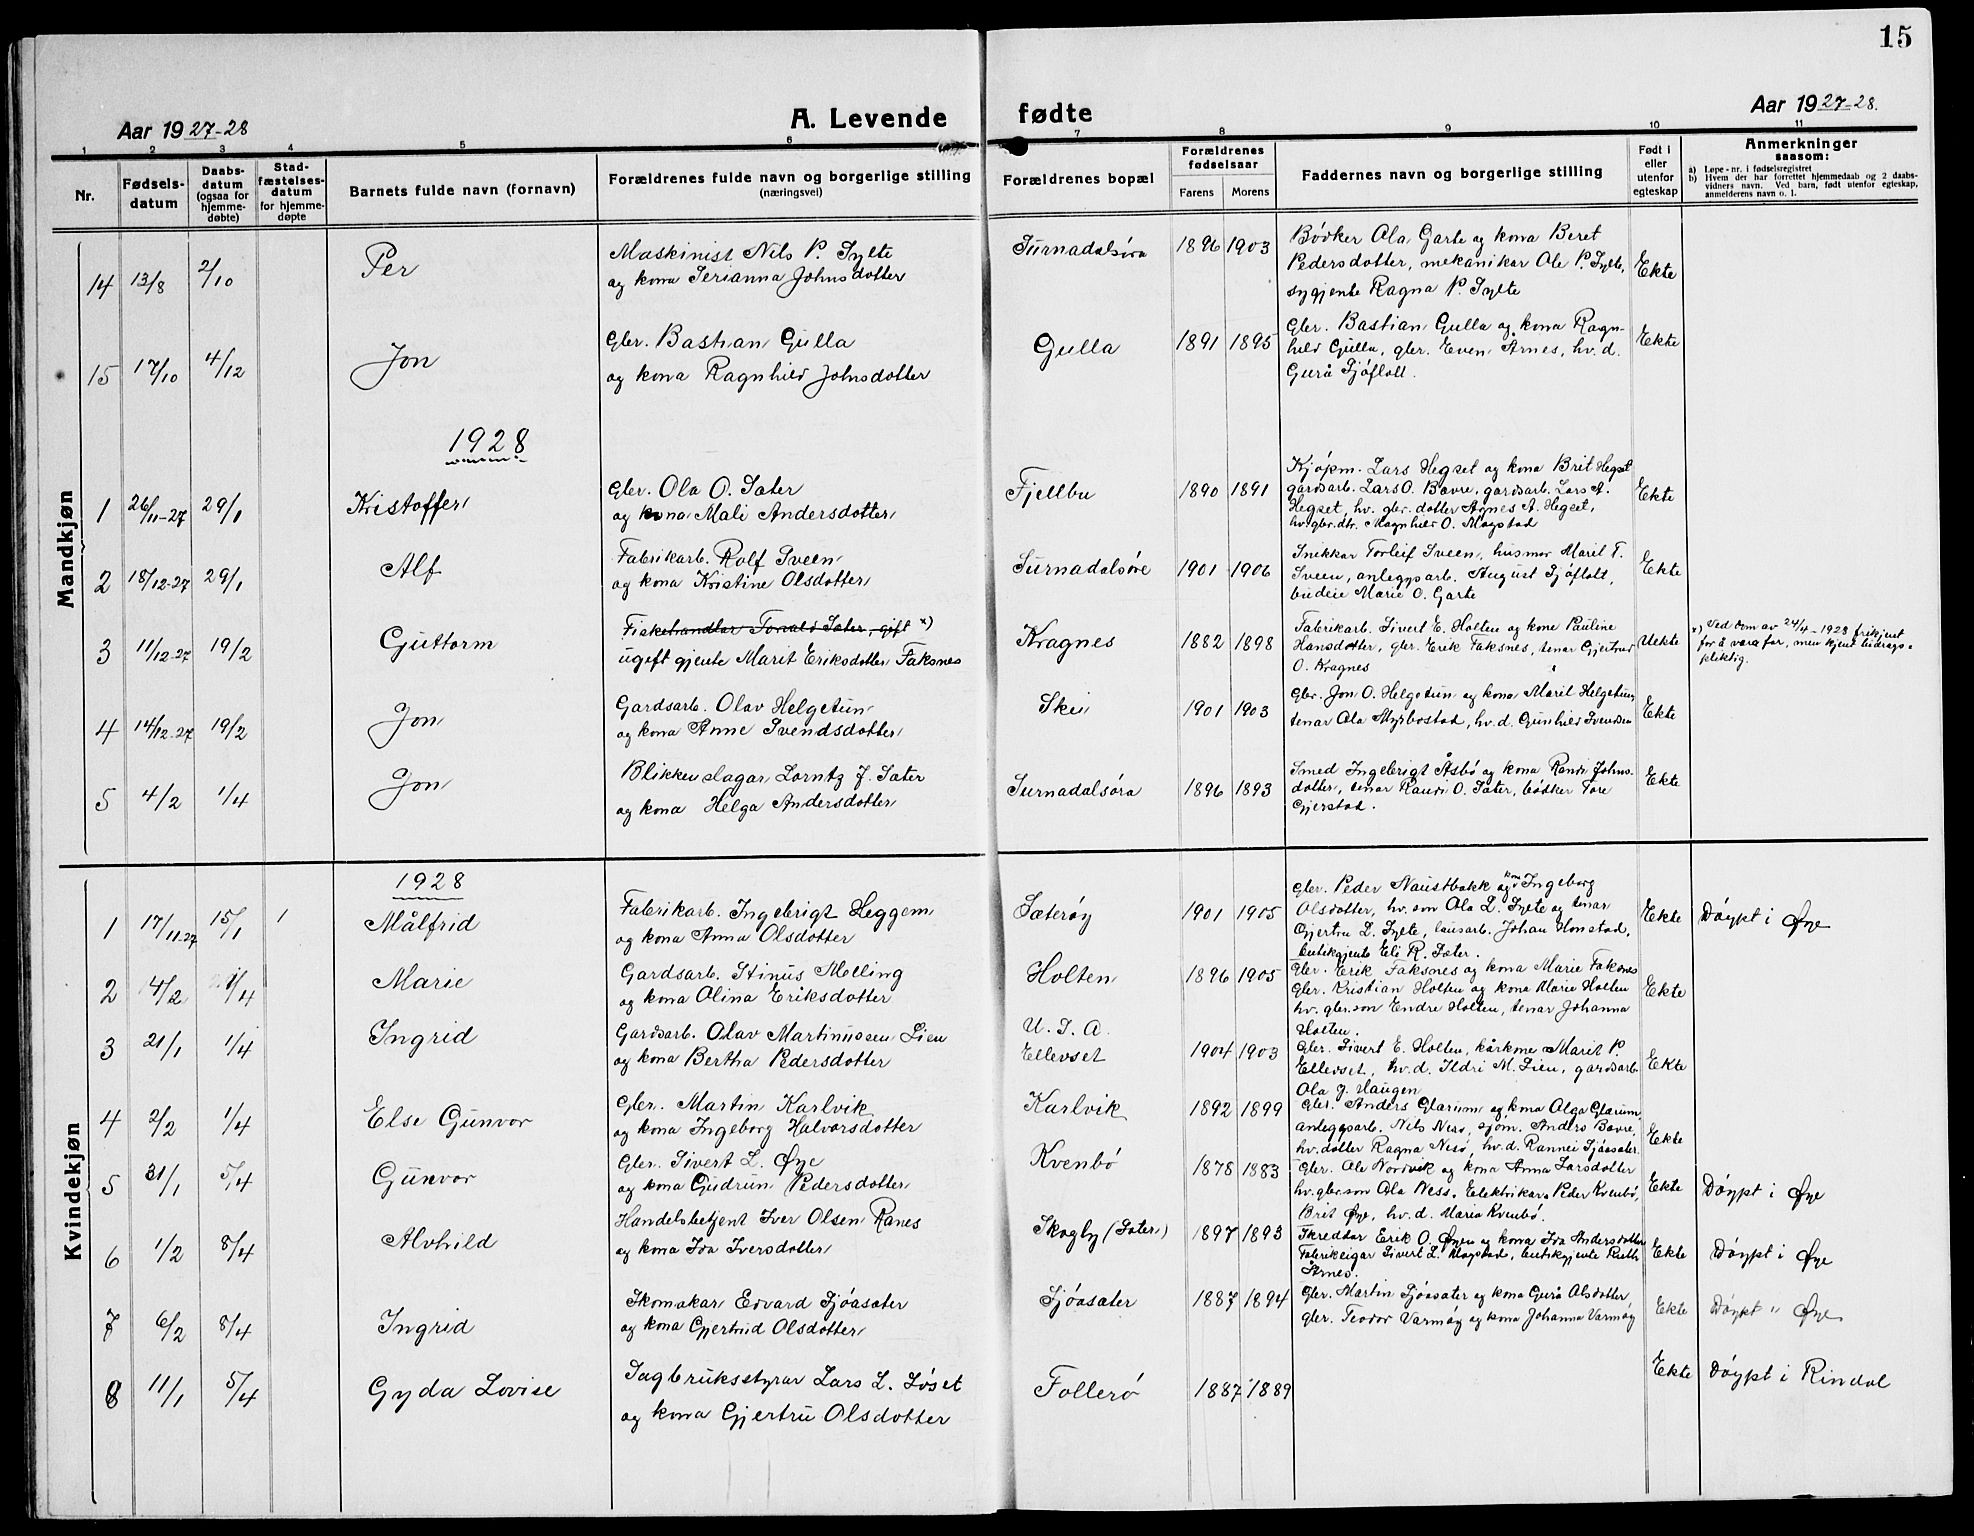 15
Aar 1927-28
A. Levende
fødte
Aar 1927-28.
1 2 3 4 5 6 7 8 9 10 11
Nr.
Fødsels-
datum
Daabs-
datum
(ogsaa for
hjemme-
døbte)
Stad-
fæstelses-
datum
for hjemme-
døpte
Barnets fulde navn (fornavn)
Forældrenes fulde navn og borgerlige stilling
(næringsvei)
Forældrenes bopæl
Forældrenes
fødselsaar
Farens Morens
Faddernes navn og borgerlige stilling
Født i
eller
utenfor
egteskap
Anmerkninger
saasom:
a) Løpe-nr. i fødselsregistret
b) Hvem der har forrettet hjemmedaab og 2 daabs-
vidners navn. Ved barn, født utenfor egteskap,
anmelderens navn o. l.
Mandkjøn
14 13/8 2/10 Per
Maskinist Nils P. Sylte
og kona Serianna Johnsdotter
Surnadalsøra 1896 1903
Bødker Ola Garte og kona Beret
Pedersdotter, mekanikar Ole P. Sylte,
sygjente Ragna P. Sylte
Ekte
15 17/10 4/12 Jon
Gbr. Bastian Gulla
og kona Ragnhild Johnsdotter
Gulla 1891 1895
Gbr. Bastian Gulla og kona Ragn-
hild Gulla, gbr. Even Årnes, hv. d.
Gurå Sjøflott.
Ekte
1928
1 26/11-27 29/1 Kristoffer
Gbr. Ola O. Sæter
og kona Mali Andersdotter
Fjellbu 1890 1891
Kjøpm. Lars Hegset og kona Brit Hegset
gardsarb. Lars O. Bævre, gardsarb. Lars A.
Hegset, hv. gbr. dotter Agnes A. Hegset,
hv. gbr. dtr. Magnhild O. Mogstad
Ekte
2 18/12-27 29/1 Alf
Fabrikarb. Rolf Sveen
og kona Kristine Olsdotter
Surnadalsøra 1901 1906
Snikkar Torleif Sveen, husmor Marit T.
Sveen, anleggsarb. August Sjøflott,
budeie Marie O. Garte
Ekte
3 11/12-27 19/2 Guttorm
Fiskehandlar Torvald Sæter, gift x)
ugift gjente Marit Eriksdotter Faksnes
Kragnes 1882 1898
Fabrikarb. Sivert E. Holten og kone Pauline
Hansdotter, gbr. Erik Faksnes, tenar Gjertrud
O. Kragnes
Uekte
x) Ved dom av 24/4-1928 frikjent
for å vera far, men kjent bidrags-
pliktig.
4 14/12-27 19/2 Jon
Gardsarb. Olav Helgetun
og kona Anne Svendsdotter
Skei 1901 1903
Gbr. Jon O. Helgetun og kona Marit Helgetun,
tenar Ola Myrbostad, hv. d. Gunhild Svendsen
Ekte
5 4/2 1/4 Jon
Blikkenslagar Lorntz J. Sæter
og kona Helga Andersdotter
Surnadalsøra 1896 1893
Smed Ingebrigt Åsbø og kona Randi Johns-
dotter, tenar Randi O. Sæter, bødker Tore
Gjerstad.
Ekte
Kvindekjøn
1928
1 17/11-27 15/1 1 Målfrid
Fabrikarb. Ingebrigt Heggem
og kona Anna Olsdotter
Sæterøy 1901 1905
Gbr. Peder Naustbakk og kona Ingeborg
Olsdotter, hv. son Ola L. Sylte og tenar
Gjertru L. Sylte, lausarb. Johan Honstad,
butikgjente Eli R. Sæter.
Ekte Døypt i Øye
2 14/2 1/4 Marie
Gardsarb. Stinus Melling
og kona Olina Eriksdotter
Holten 1896 1905
Gbr. Erik Faksnes og kona Marie Faksnes
Gbr. Kristian Holten og kona Marie Holten
hv. gbr. son Endre Holten, tenar Johanna
Holten.
Ekte
3 21/1 1/4 Ingrid
Gardsarb. Olav Martinussen Lien
og kona Bertha Pedersdotter
U. S. A.
Ellevset 1904 1903
Gbr. Sivert E. Holten, kårkone Marit P.
Ellevset, hv. d. Ildri M. Lien, gardsarb.
Ola J. Haugen
Ekte
4 2/2 1/4 Else Gunvor
Gbr. Martin Karlvik
og kona Ingeborg Halvorsdotter
Karlvik 1892 1899
Gbr. Anders Glærum og kona Olga Glærum,
anleggsarb. Nils Nesø, sjøm. Anders Bævre,
hv. dotter Ragna Nesø, hv. d. Rannei Sjøasæter
Ekte
5 31/1 5/4 Gunvor
Gbr. Sivert L. Øye
og kona Gudrun Pedersdotter
Kvenbø 1878 1883
Gbr. Ole Nordvik og kona Anna Larsdotter
hv. gbr. son Ola Ness. Elektrikar Peder Kvenbø,
Brit Øye, hv. d. Maria Kvenbø.
Ekte Døypt i Øye
6 1/2 8/4 Alvhild
Handelsbetjent Iver Olsen Ranes
og kona Ida Iversdotter
Skogly (Sæter) 1897 1893
Skreddar Erik O. Øyen og kona Ida Andersdotter
Fabrikeigar Sivert L. Mogstad, butikgjente Ruth
Årnes.
Ekte Døypt i Øye
7 6/2 8/4 Ingrid
Skomakar Edvard Sjøasæter
og kona Gjertrud Olsdotter
Sjøasæter 1887 1894
Gbr. Martin Sjøasæter og kona Gurå Olsdotter
gbr. Teodor Værmøy og kona Johanna Værmøy
Ekte Døypt " Øye
8 11/1 5/4 Gyda Lovise
Sagbruksstyrar Lars L. Løset
og kona Gjertru Olsdotter
Follerø 1887 1889
Ekte Døypt i Rindal